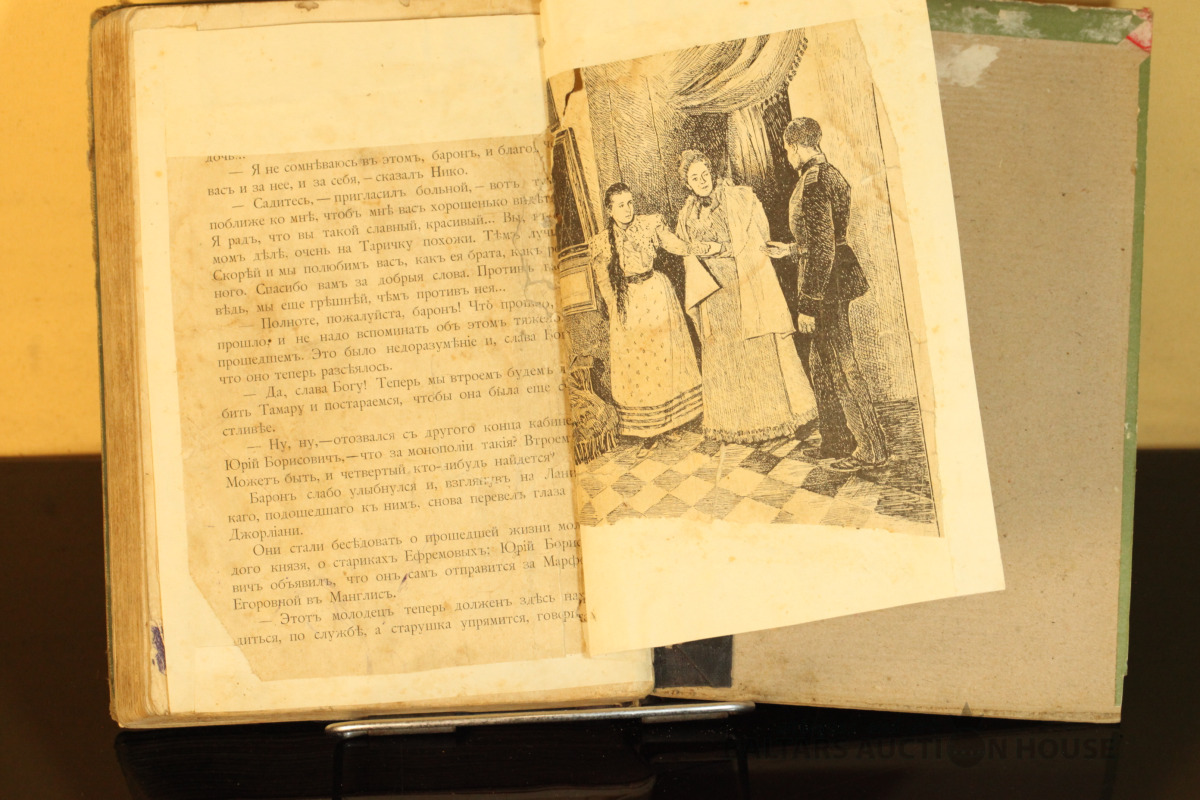 дочь...
— Я не сомнѣваюсь въ этомъ, баронъ, и благо
васъ и за нее, и за себя, — сказалъ Нико.
— Садитесь, — пригласилъ больной, — вотъ
поближе ко мнѣ, чтобъ мнѣ васъ хорошенько видѣт
Я радъ, что вы такой славный, красивый... Вы,
момъ дѣлѣ, очень на Таричку похожи. Тѣмъ луч
Скорѣй и мы полюбимъ васъ, какъ ея брата, какъ
ного. Спасибо вамъ за добрыя слова. Противъ
вѣдь, мы еще грѣшнѣй, чѣмъ противъ нея...
— Полноте, пожалуйста, баронъ! Что прошло,
прошло; и не надо вспоминать объ этомъ тяжел
прошедшемъ. Это было недоразумѣніе и, слава Бог
что оно теперь разсѣялось.
— Да, слава Богу! Теперь мы втроемъ будемъ
бить Тамару и постараемся, чтобы она была еще
стливѣе.
— Ну, ну,—отозвался съ другого конца кабине
Юрій Борисовичъ,—что за монополіи такія? Втроем
Можетъ быть, и четвертый кто-нибудь найдется
Баронъ слабо улыбнулся и, взглянувъ на Лан
каго, подошедшаго къ нимъ, снова перевелъ глаза
Джорліани.
Они стали бесѣдовать о прошедшей жизни мол
дого князя, о старикахъ Ефремовыхъ; Юрій Борис
вичъ объявилъ, что онъ самъ отправится за Марѳ
Егоровной въ Манглисъ.
— Этотъ молодецъ теперь долженъ здѣсь нах
диться, по службѣ, а старушка упрямится, говори
ALTARS AUCTION HOUSE